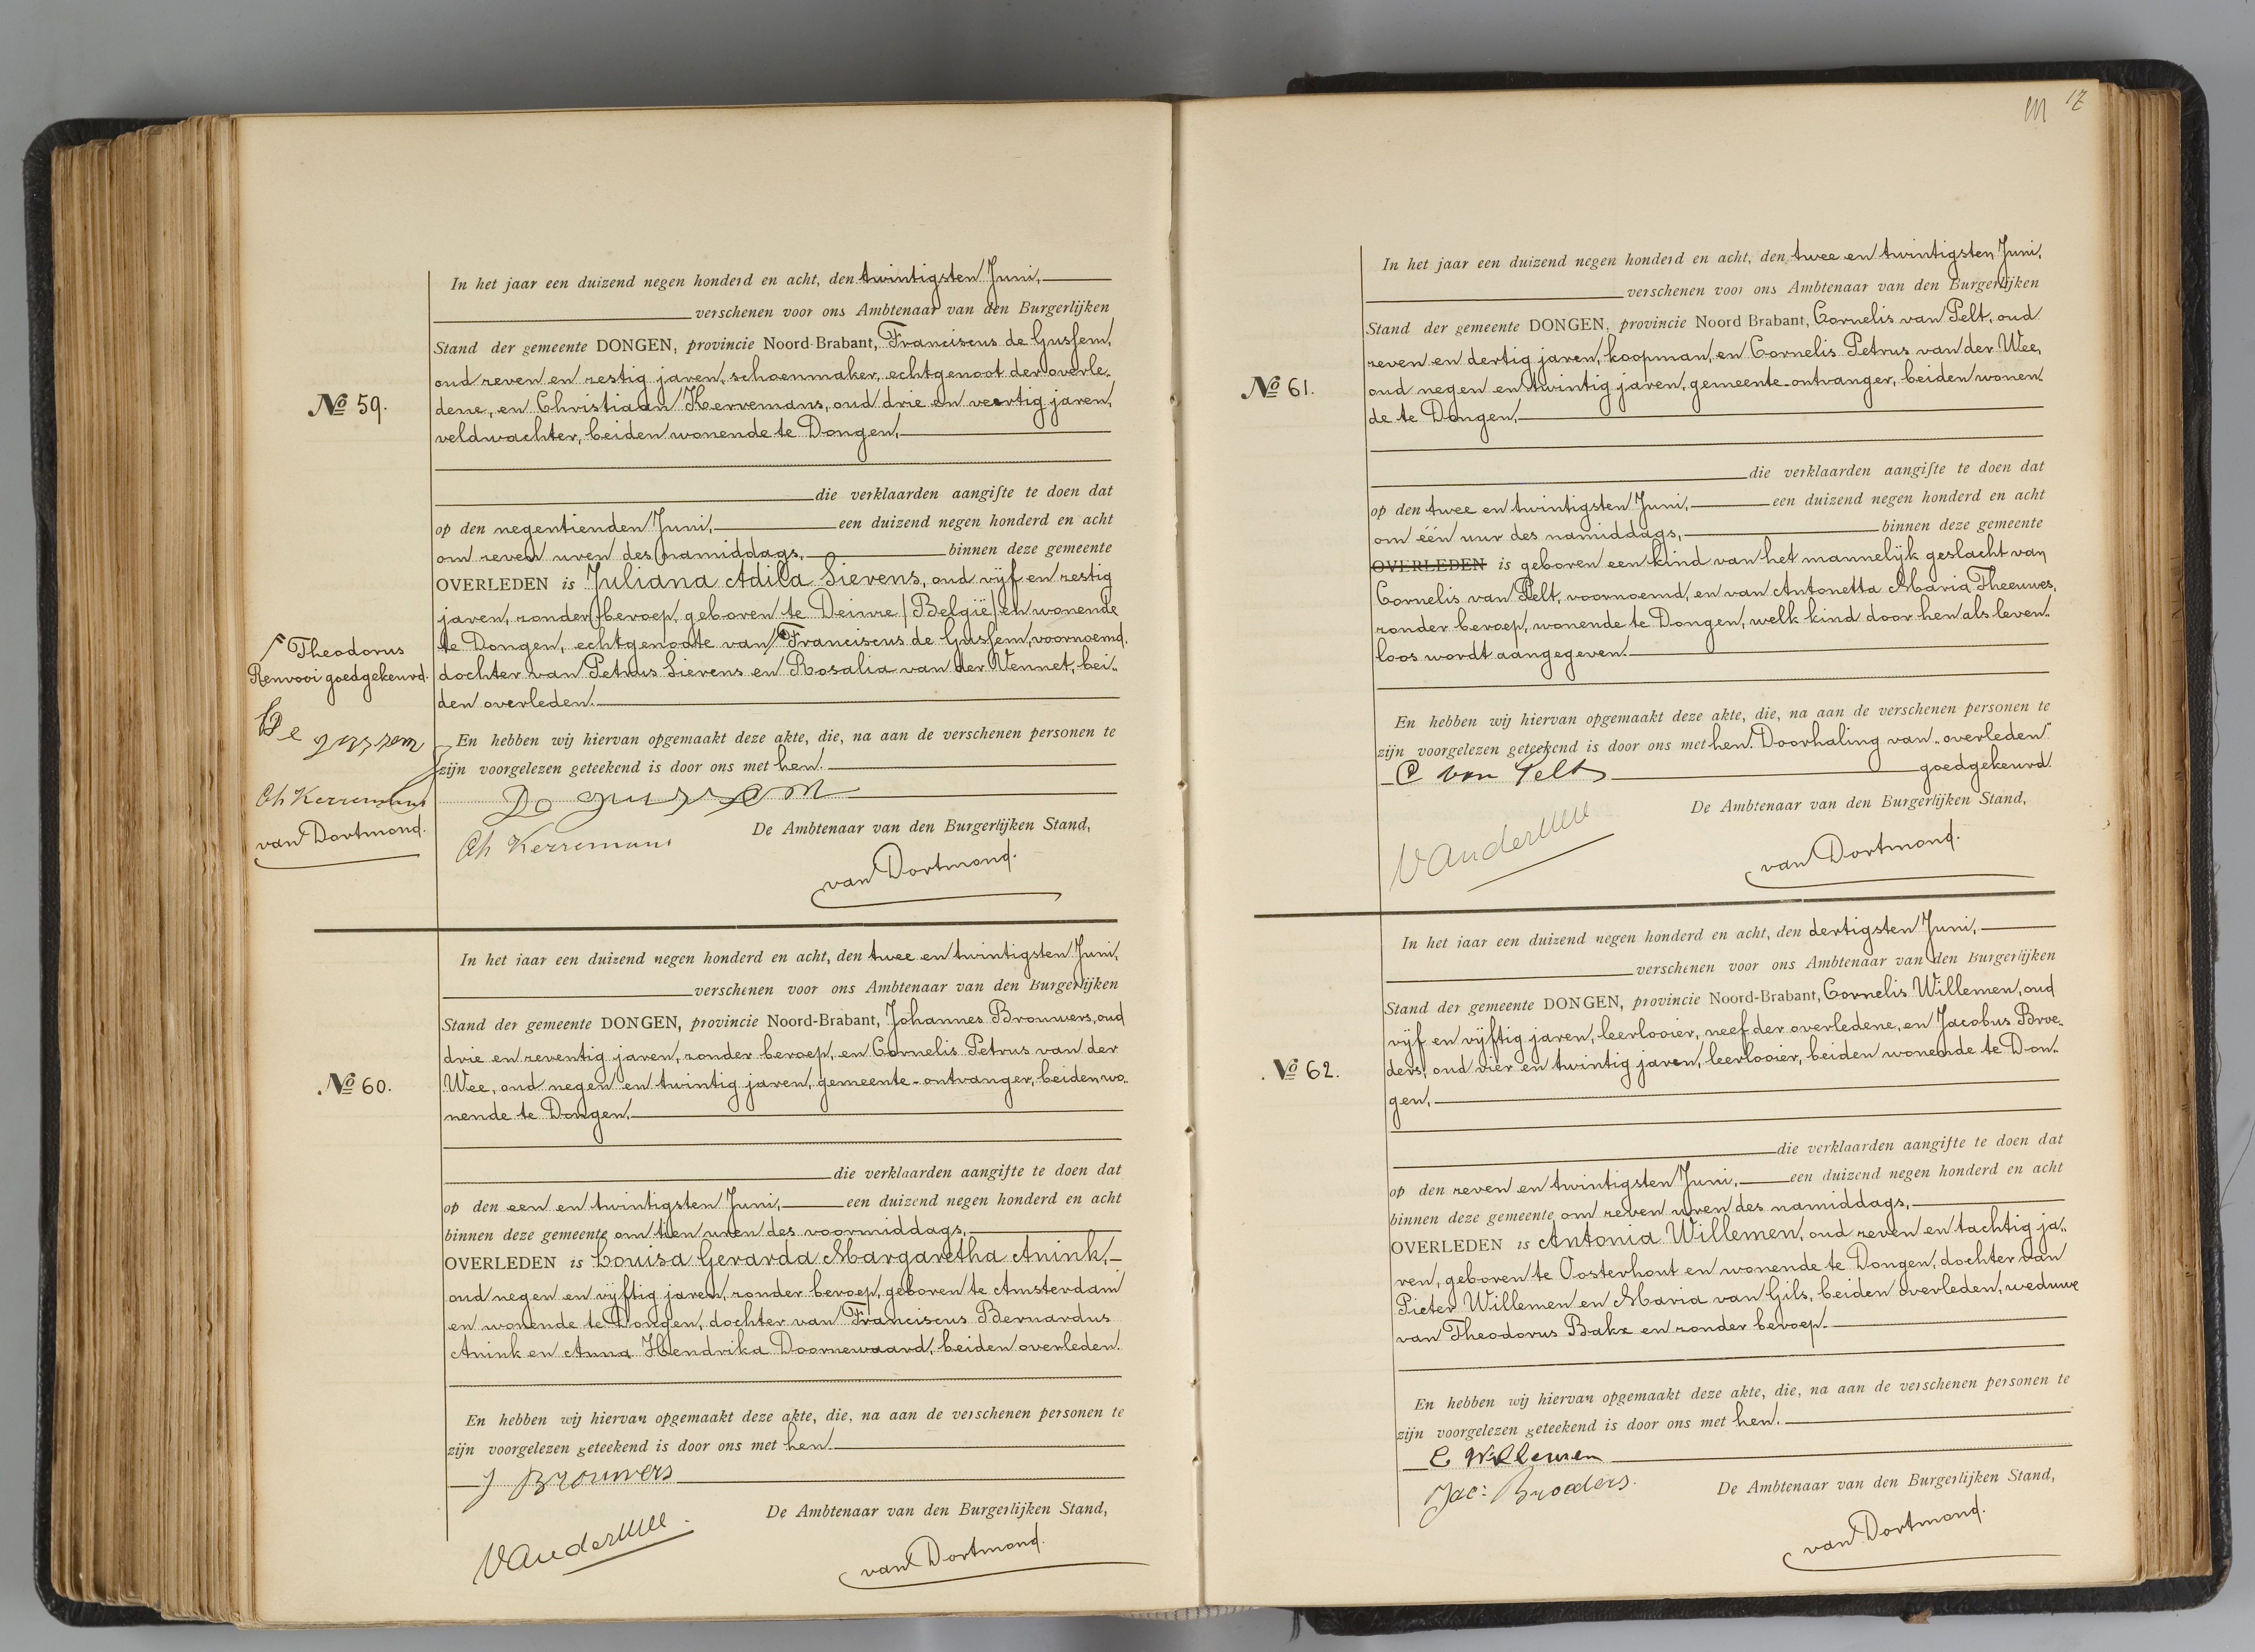 No 59.
In het jaar een duizend negen honderd en acht, den twintigsten Juni,
verschenen voor ons Ambtenaar van den Burgerlijken
Stand der gemeente DONGEN, provincie Noord-Brabant, Franciscus de Gussem,
oud zeven en zestig jaren, schoenmaker, echtgenoot der overle-
dene, en Christiaan Kerremans, oud drie en veertig jaren,
veldwachter, beiden wonende te Dongen,
die verklaarden aangifte te doen dat
op den negentienden Juni, een duizend negen honderd en acht
om zeven uren des namiddags, binnen deze gemeente
OVERLEDEN is Juliana Adila Sievens, oud vijf en zestig
jaren, zonder beroep, geboren te Deinze (België) en wonende
te Dongen, echtgenoote van Franciscus de Gussem, voornoemd,
dochter van Petrus Sievens en Rosalia van der Vennet, bei-
den overleden.
Theodorus
Renvooi goedgekeurd.
De gussem
Ch Kerremans
van Dortmond.
En hebben wij hiervan opgemaakt deze akte, die, na aan de verschenen personen te
zijn voorgelezen geteekend is door ons met hen.
De gussem
Ch Kerremans
De Ambtenaar van den Burgerlijken Stand,
van Dortmond.
No 60.
In het jaar een duizend negen honderd en acht, den twee en twintigsten Juni,
verschenen voor ons Ambtenaar van den Burgerlijken
Stand der gemeente DONGEN, provincie Noord-Brabant, Johannes Brouwers, oud
drie en zeventig jaren, zonder beroep, en Cornelis Petrus van der
Wee, oud negen en twintig jaren, gemeente-ontvanger, beiden wo-
nende te Dongen,
die verklaarden aangifte te doen dat
op den een en twintigsten Juni, een duizend negen honderd en acht
binnen deze gemeente om tien uren des voormiddags,
OVERLEDEN is Louisa Gerarda Margaretha Anink,
oud negen en vijftig jaren, zonder beroep, geboren te Amsterdam
en wonende te Dongen, dochter van Franciscus Bernardus
Anink en Anna Hendrika Doornewaard, beiden overleden.
En hebben wij hiervan opgemaakt deze akte, die, na aan de verschenen personen te
zijn voorgelezen geteekend is door ons met hen.
J Brouwers
VanderWee.
De Ambtenaar van den Burgerlijken Stand,
van Dortmond.
17
No 61.
In het jaar een duizend negen honderd en acht, den twee en twintigsten Juni,
verschenen voor ons Ambtenaar van den Burgerlijken
Stand der gemeente DONGEN, provincie Noord Brabant, Cornelis van Pelt, oud
zeven en dertig jaren, koopman, en Cornelis Petrus van der Wee,
oud negen en twintig jaren, gemeente-ontvanger, beiden wonen-
de te Dongen,
die verklaarden aangifte te doen dat
op den twee en twintigsten Juni, een duizend negen honderd en acht
om één uur des namiddags, binnen deze gemeente
OVERLEDEN is geboren een kind van het mannelijk geslacht van
Cornelis van Pelt, voornoemd, en van Antonetta Maria Theeuwes,
zonder beroep, wonende te Dongen, welk kind door hen als leven-
loos wordt aangegeven.
En hebben wij hiervan opgemaakt deze akte, die, na aan de verschenen personen te
zijn voorgelezen geteekend is door ons met hen. Doorhaling van "overleden"
goedgekeurd.
C van Pelt
VanderWee
De Ambtenaar van den Burgerlijken Stand,
van Dortmond.
No 62.
In het jaar een duizend negen honderd en acht, den dertigsten Juni,
verschenen voor ons Ambtenaar van den Burgerlijken
Stand der gemeente DONGEN, provincie Noord-Brabant, Cornelis Willemen, oud
vijf en vijftig jaren, leerlooier, neef der overledene, en Jacobus Broe-
ders, oud vier en twintig jaren, leerlooier, beiden wonende te Don-
gen,
die verklaarden aangifte te doen dat
op den zeven en twintigsten Juni, een duizend negen honderd en acht
binnen deze gemeente om zeven uren des namiddags,
OVERLEDEN is Antonia Willemen, oud zeven en tachtig ja-
ren, geboren te Oosterhout en wonende te Dongen, dochter van
Pieter Willemen en Maria van Gils, beiden overleden, weduwe
van Theodorus Bakx en zonder beroep.
En hebben wij hiervan opgemaakt deze akte, die, na aan de verschenen personen te
zijn voorgelezen geteekend is door ons met hen.
C Willemen
Jac: Broeders.
De Ambtenaar van den Burgerlijken Stand,
van Dortmond.